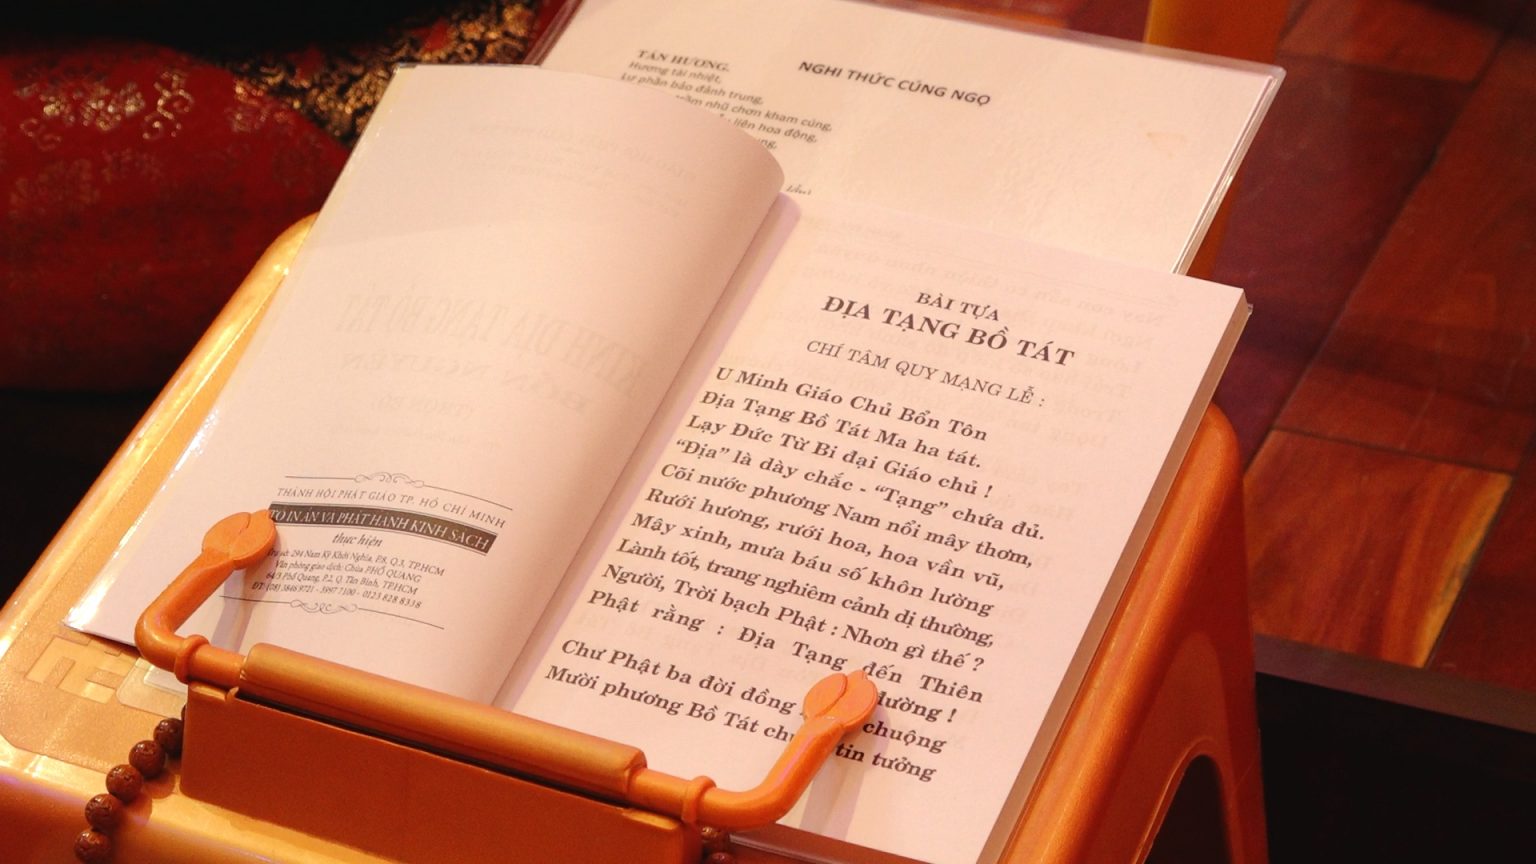 TÁN HƯƠNG.
Hương tài nhiệt,
Lư phần bảo đảnh trung,
chơn kham cúng,
liên hoa động,
NGHI THỨC CÚNG NGỌ
THÀNH HỘI PHẬT GIÁO TP. HỒ CHÍ MINH
TỔ IN ẤN VÀ PHÁT HÀNH KINH SÁCH
thực hiện
Trụ sở: 294 Nam Kỳ Khởi Nghĩa, P.8, Q.3, TP.HCM
Văn phòng giao dịch: Chùa PHỔ QUANG
64/3 Phổ Quang, P.2, Q. Tân Bình, TP.HCM
ĐT: (08) 3846 9721 - 3997 7100 - 0123 828 8338
BÀI TỰA
ĐỊA TẠNG BỒ TÁT
CHÍ TÂM QUY MẠNG LỄ :
U Minh Giáo Chủ Bổn Tôn
Địa Tạng Bồ Tát Ma ha tát.
Lạy Đức Từ Bi đại Giáo chủ !
“Địa” là dày chắc - “Tạng” chứa đủ.
Cõi nước phương Nam nổi mây thơm,
Rưới hương, rưới hoa, hoa vần vũ,
Mây xinh, mưa báu số khôn lường
Lành tốt, trang nghiêm cảnh dị thường,
Người, Trời bạch Phật : Nhơn gì thế ?
Phật rằng : Địa Tạng đến Thiên
đường !
Chư Phật ba đời đồng chuộng
Mười phương Bồ Tát tin tưởng